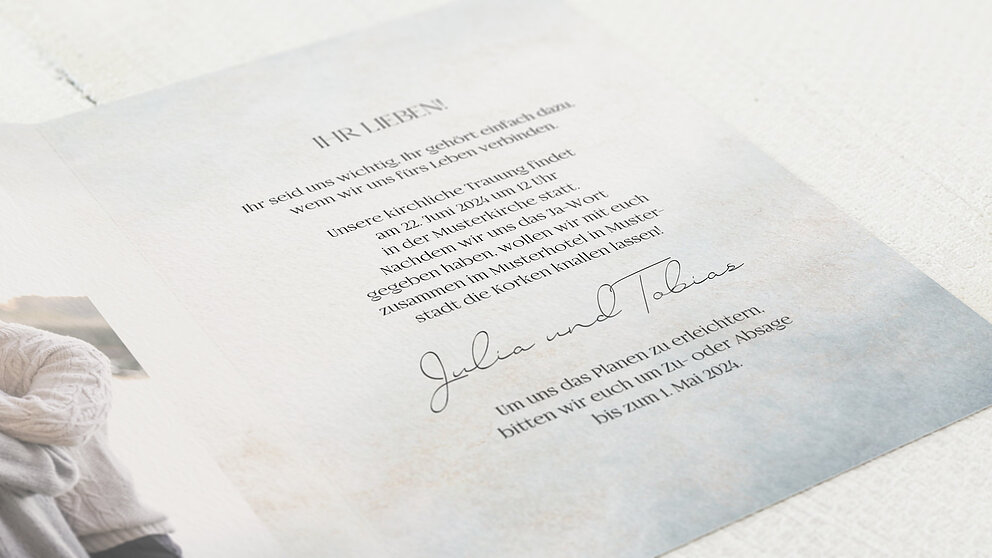 IHR LIEBEN!
Ihr seid uns wichtig. Ihr gehört einfach dazu,
wenn wir uns fürs Leben verbinden.
Unsere kirchliche Trauung findet
am 22. Juni 2024 um 12 Uhr
in der Musterkirche statt.
Nachdem wir uns das Ja-Wort
gegeben haben, wollen wir mit euch
zusammen im Musterhotel in Muster-
stadt die Korken knallen lassen!
Julia und Tobias
Um uns das Planen zu erleichtern,
bitten wir euch um Zu- oder Absage
bis zum 1. Mai 2024.